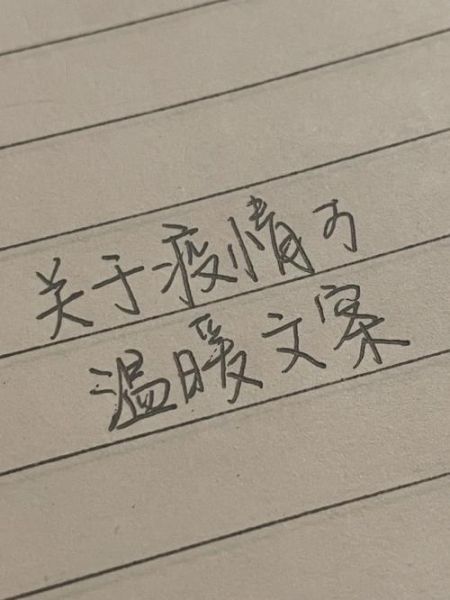 关于疫情的
温暖文案